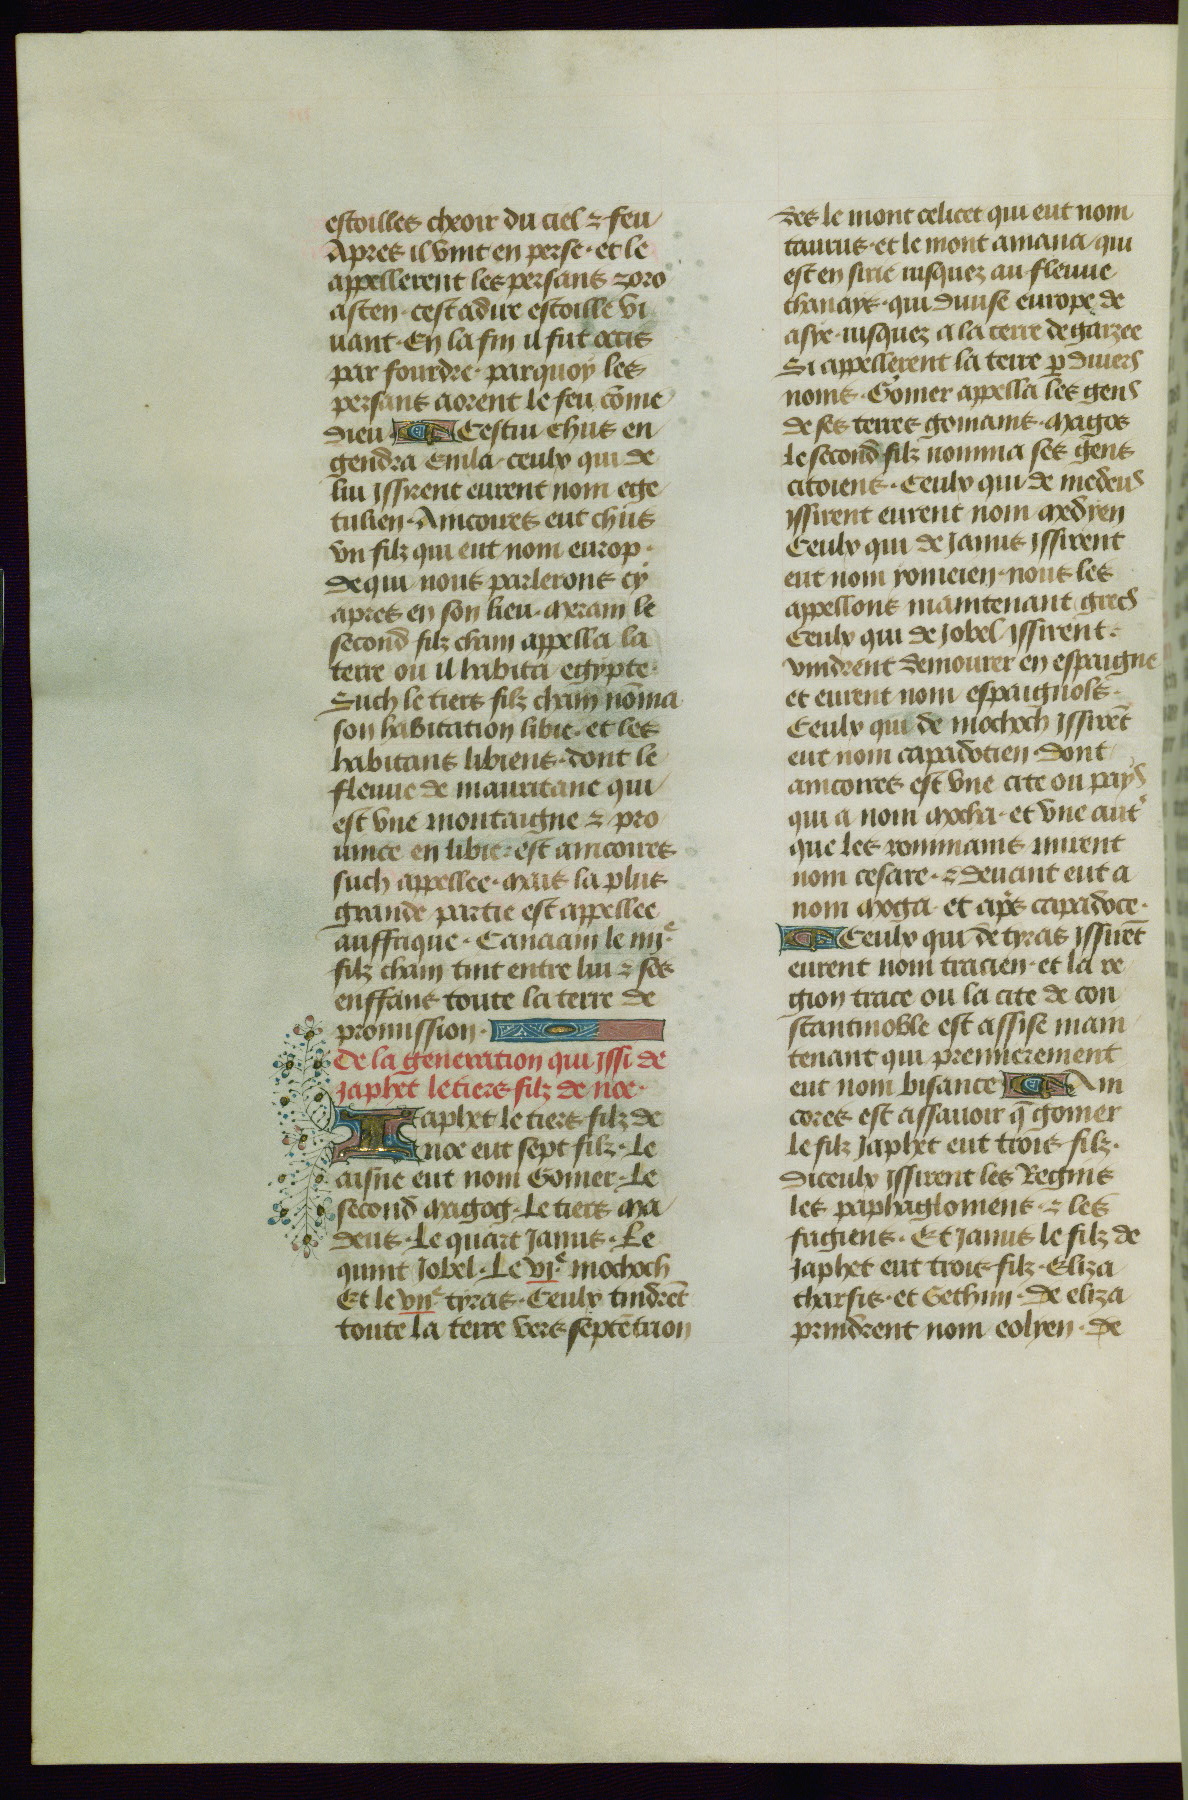 estoilles cheoir du ciel ⁊ feu
Apres il vint en perse · et le
appellerent les persans zoro
asten · cest adire estoille vi
uant · En la fin il fut occis
par fourdre · parquoy les
persans aorent le feu co̅me
dieu · Cestui chus en
gendra Emla · ceulx qui de
lui issirent eurent nom ege
tulien · Amcoires eut chus
vn filz qui eut nom europ ·
de qui nous parlerons cy
apres en son lieu · meram le
second filz cham appella la
terre ou il habita egypte ·
Such le tiers filz cham no̅ma
son habitation libie · et les
habitans libiens · dont le
fleuue de mauritane qui
est vne montaigne ⁊ pro
uince en libie · est amcoires
such appellee · mais la plus
grande partie est appellee
auffrique · Canaam le iiiiᵉ
filz cham tint entre lui ⁊ ses
enffans toute la terre de
promission ·
De la generation qui issi de
japhet le tiers filz de noe ·
Iaphet le tiers filz de
noe eut sept filz · Le
aisne eut nom Gomer · Le
second magog · Le tiers ma
deus · Le quart Janus · Le
quint Jobel · Le viᵉ mochoch
Et le viiᵉ tyras · Ceulx tindre̅t
toute la terre vers septe̅trion
des le mont celicet qui eut nom
taurus · et le mont amana · qui
est en sirie iusquez au fleuue
thanays · qui diuise europe de
asye · iusquez a la terre de garzee
Si appellerent la terre p diuers
noms · Gomer appella les gens
de ses terres gomams · magos
le second filz nomma ses gens
citoiens · Ceulx qui de medeus
issirent eurent nom medyen
Ceulx qui de Janus issirent
eut nom yomeien · nous les
appellons maintenant grecs
Ceulx qui de Jobel issirent ·
vindrent demourer en espaigne
et eurent nom espaignols ·
Ceulx qui de mochoch issire̅t
eut nom capadocien · dont
amcoires est vne cite ou pays
qui a nom mocha · et vne autˢ
que les rommains mirent
nom cesare · ⁊ deuant eut a
nom moga · et ap̅s capadoce ·
Ceulx qui de tyras issire̅t
eurent nom tracien · et la re
gion trace ou la cite de con
stantinoble est assise main
tenant qui premierement
eut nom bisance Am
cores est assauoir q̅ gomer
le filz Japhet eut trois filz ·
diceulx issirent les Regins
les paphagloniens · ⁊ les
frigiens · Et Janus le filz de
Japhet eut trois filz · Eliza
tharsis · et Cethim · De eliza
prindrent nom eolyen · de